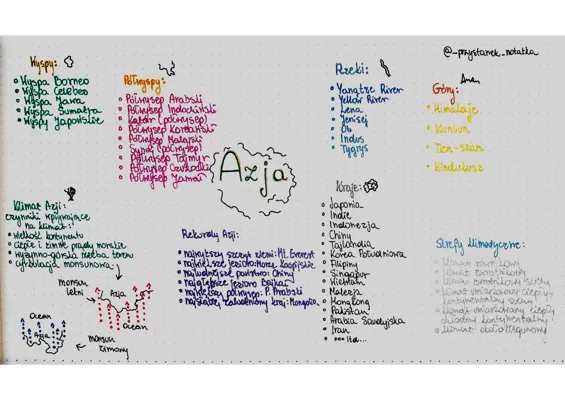 @_przystanek_notatka
Wyspy:
Wyspa Borneo
Wyspa Celebes
Wyspa Jawa
Wyspa Sumatra
Wyspy Japońskie
Półwyspy:
Półwysep Arabski
Półwysep Indochiński
Katar (półwysep)
Półwysep Koreański
Półwysep Malajski
Synaj (półwysep)
Półwysep Tajmyr
Półwysep Czukocki
Półwysep Jamał
Azja
Rzeki:
Yangtze River
Yellow River
Lena
Jenisej
Ob
Indus
Tygrys
Góry:
Himalaje
Kunlun
Tien-szan
Hindukusz
Klimat Azji:
czynniki wpływające
na klimat:
wielkość kontynentu
ciepłe i zimne prądy morskie
wyżynno-górska rzeźba terenu
cyrkulacja monsunowa
monsun
letni
Azja
Ocean
Ocean
Azja
monsun
zimowy
Rekordy Azji:
najwyższy szczyt ziemi: Mt. Everest
największe jezioro: Morze Kaspijskie
najludniejsze państwo: Chiny
najgłębsze jezioro Bajkał
największy półwysep: P. Arabski
najrzadziej zaludniony kraj: Mongolia
Kraje:
Japonia
Indie
Indonezja
Chiny
Tajlandia
Korea Południowa
Filipiny
Singapur
Wietnam
Malezja
Hongkong
Pakistan
Arabia Saudyjska
Iran
... itd...
Strefy klimatyczne:
klimat równikowy
klimat zwrotnikowy
klimat zwrotnikowy suchy
klimat umiarkowany ciepły
kontynentalny suchy
klimat umiarkowany ciepły
chłodny kontynentalny
klimat okołobiegunowy